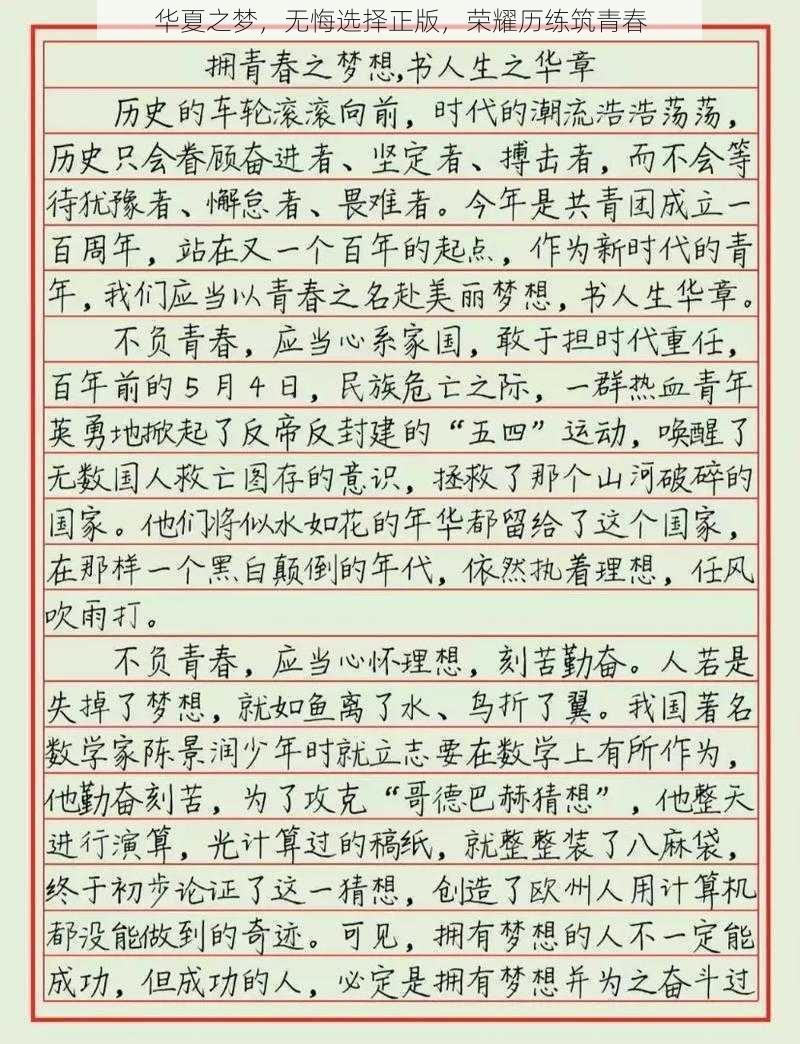 华夏之梦，无悔选择正版，荣耀历练筑青春
拥青春之梦想,书人生之华章
历史的车轮滚滚向前，时代的潮流浩浩荡荡，
历史只会眷顾奋进者、坚定者、搏击者，而不会等
待犹豫者、懈怠者、畏难者。今年是共青团成立一
百周年，站在又一个百年的起点，作为新时代的青
年，我们应当以青春之名赴美丽梦想，书人生华章。
不负青春，应当心系家国，敢于担时代重任，
百年前的5月4日，民族危亡之际，一群热血青年
英勇地掀起了反帝反封建的“五四”运动，唤醒了
无数国人救亡图存的意识，拯救了那个山河破碎的
国家。他们将似水如花的年华都留给了这个国家，
在那样一个黑白颠倒的年代，依然执着理想，任风
吹雨打。
不负青春，应当心怀理想，刻苦勤奋。人若是
失掉了梦想，就如鱼离了水、鸟折了翼。我国著名
数学家陈景润少年时就立志要在数学上有所作为，
他勤奋刻苦，为了攻克“哥德巴赫猜想”，他整天
进行演算，光计算过的稿纸，就整整装了八麻袋，
终于初步论证了这一猜想，创造了欧州人用计算机
都没能做到的奇迹。可见，拥有梦想的人不一定能
成功，但成功的人，必定是拥有梦想并为之奋斗过